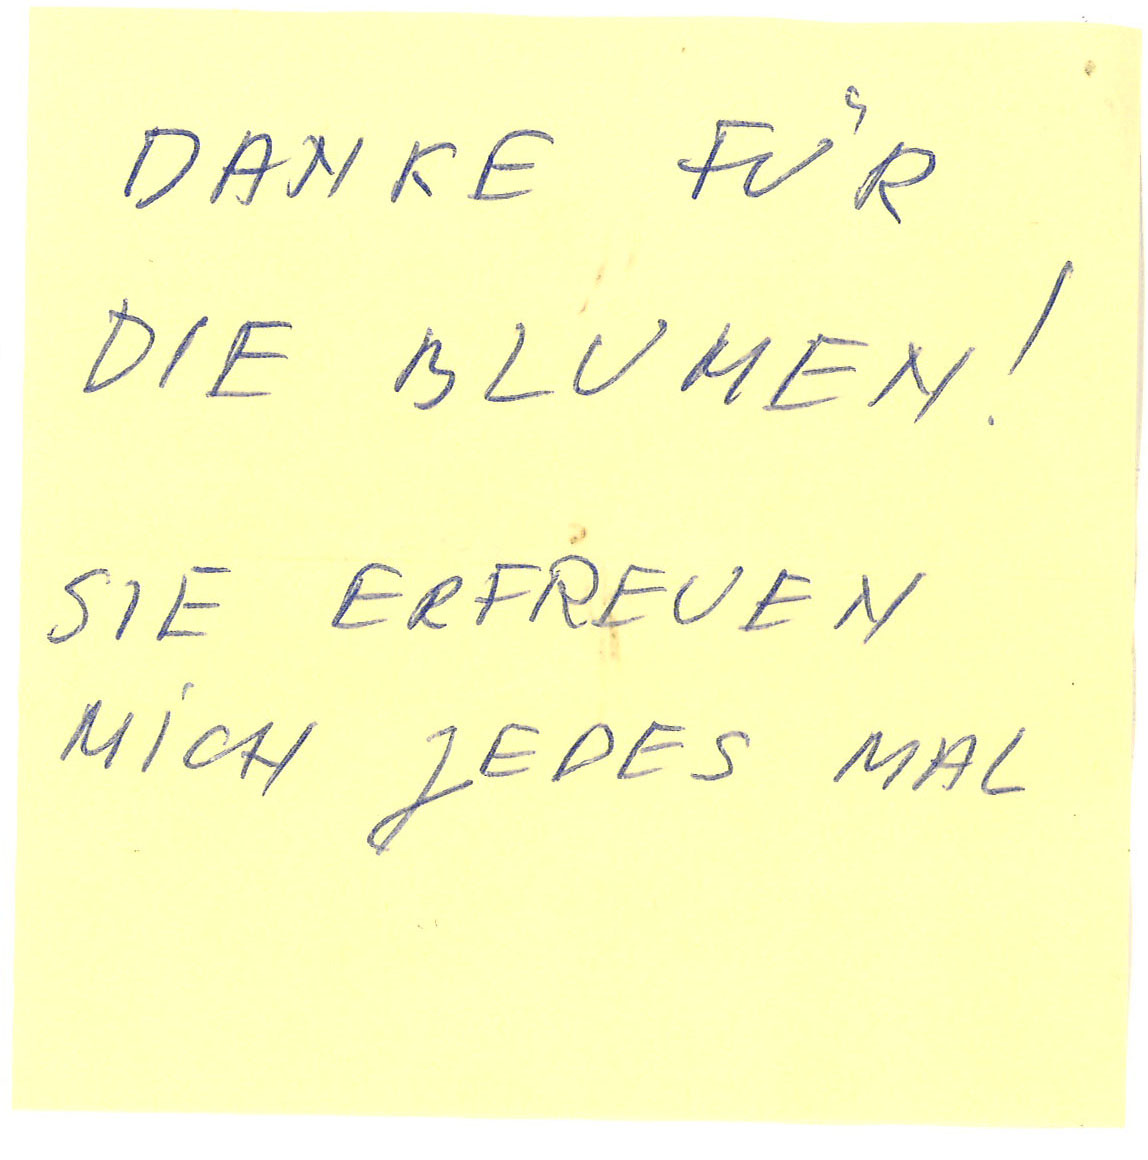 DANKE FÜR
DIE BLUMEN!
SIE ERFREUEN
MICH JEDES MAL